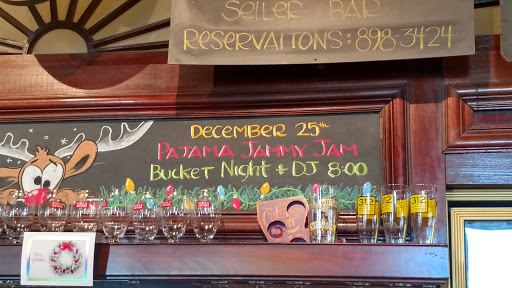 SELLER BAR
RESERVAITONS: 898-3424
DECEMBER 25TH
PAJAMA JAMMY JAM
BUCKET NIGHT + DJ 8:00
312
312